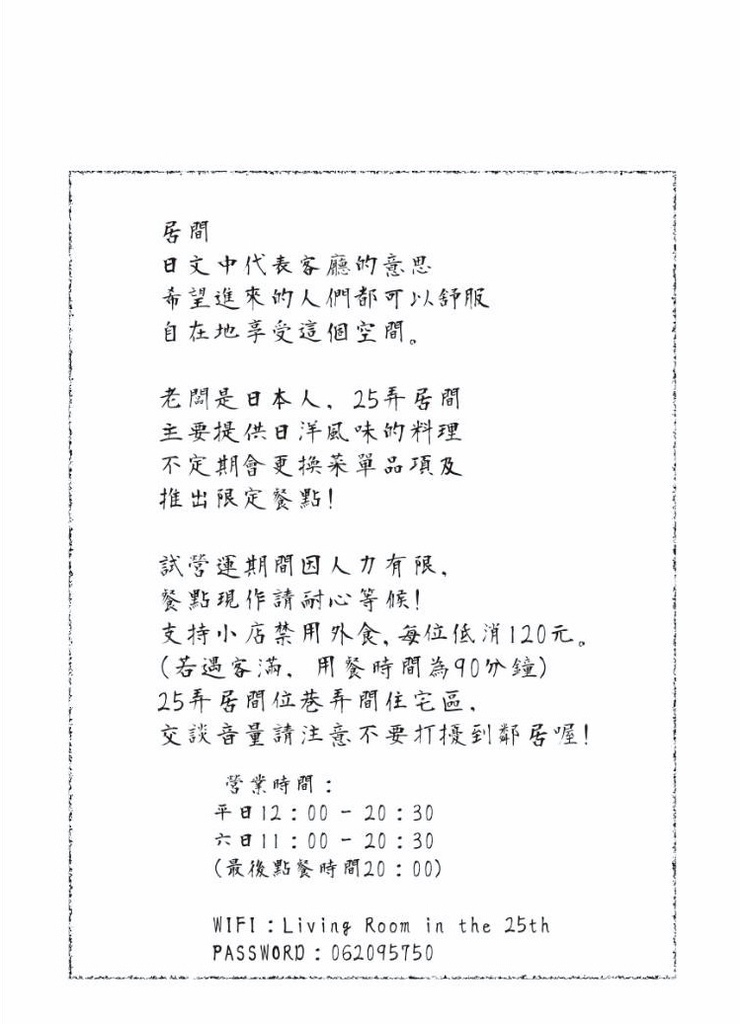 居間
日文中代表客廳的意思
希望進來的人們都可以舒服
自在地享受這個空間。
老闆是日本人，25弄居間
主要提供日洋風味的料理
不定期會更換菜單品項及
推出限定餐點!
試營運期間因人力有限，
餐點現作請耐心等候!
支持小店禁用外食，每位低消120元。
(若遇客滿，用餐時間為90分鐘)
25弄居間位巷弄間住宅區，
交談音量請注意不要打擾到鄰居喔!
營業時間：
平日12：00 - 20：30
六日11：00 - 20：30
(最後點餐時間20：00)
WIFI：Living Room in the 25th
PASSWORD：062095750